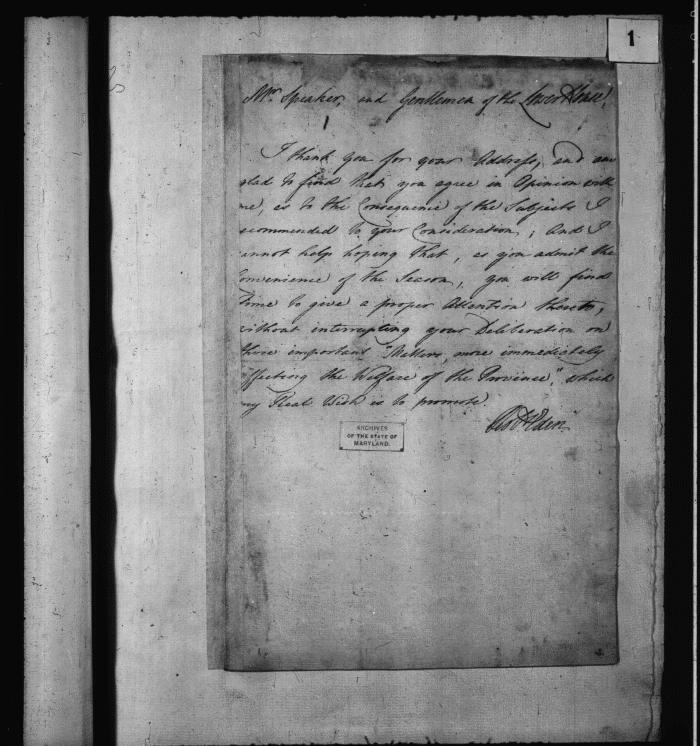 1
Mr. Speaker, and Gentlemen of the Lower House,
I thank you for your Address, and am
glad to find that you agree in Opinion with
me, as to the Consequence of the Subjects I
ecommended to your Consideration; And I
annot help hoping that, as you admit the
onvenience of the Season, you will find
time to give a proper Attention thereto,
without interrupting your Deliberation on
those important "Matters, more immediately
affecting the Welfare of the Province," which
my Real Wish is to promote.
Robt Eden
ARCHIVES
OF THE STATE OF
MARYLAND.